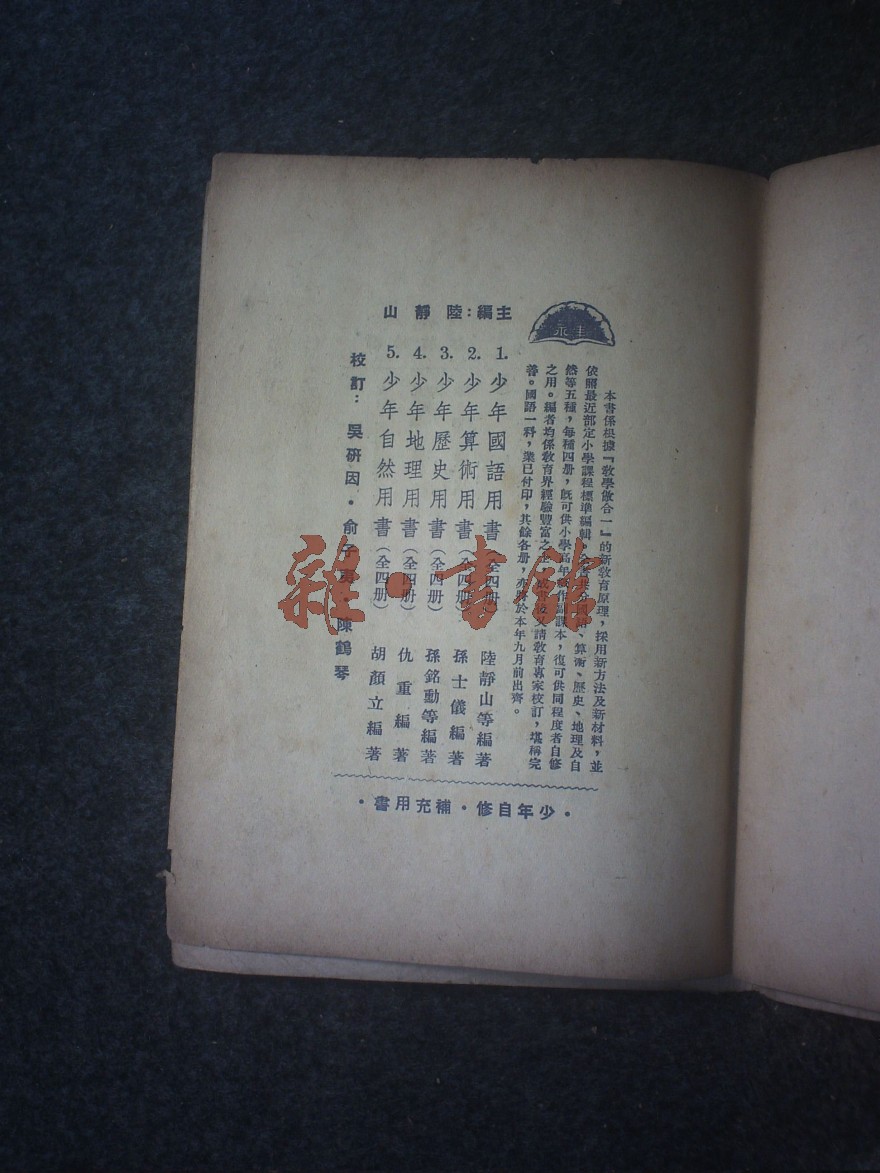 生永
本書係根據『敎學做合一』的新敎育原理，採用新方法及新材料，並
依照最近部定小學課程標準編輯，全書共分國語、算術、歷史、地理及自
然等五種，每種四册，旣可供小學高年級作副課本，復可供同程度者自修
之用。編者均係敎育界經驗豐富之士，請敎育專家校訂，堪稱完
善。國語一科，業已付印，其餘各册，亦於本年九月前出齊。
主編：陸靜山
1. 少年國語用書（全四册） 陸靜山等編著
2. 少年算術用書（全四册） 孫士儀編著
3. 少年歷史用書（全四册） 孫銘勳等編著
4. 少年地理用書（全四册） 仇重編著
5. 少年自然用書（全四册） 胡顏立編著
校訂：吳硏因·俞子夷·陳鶴琴
·少年自修·補充用書·
雜·書館